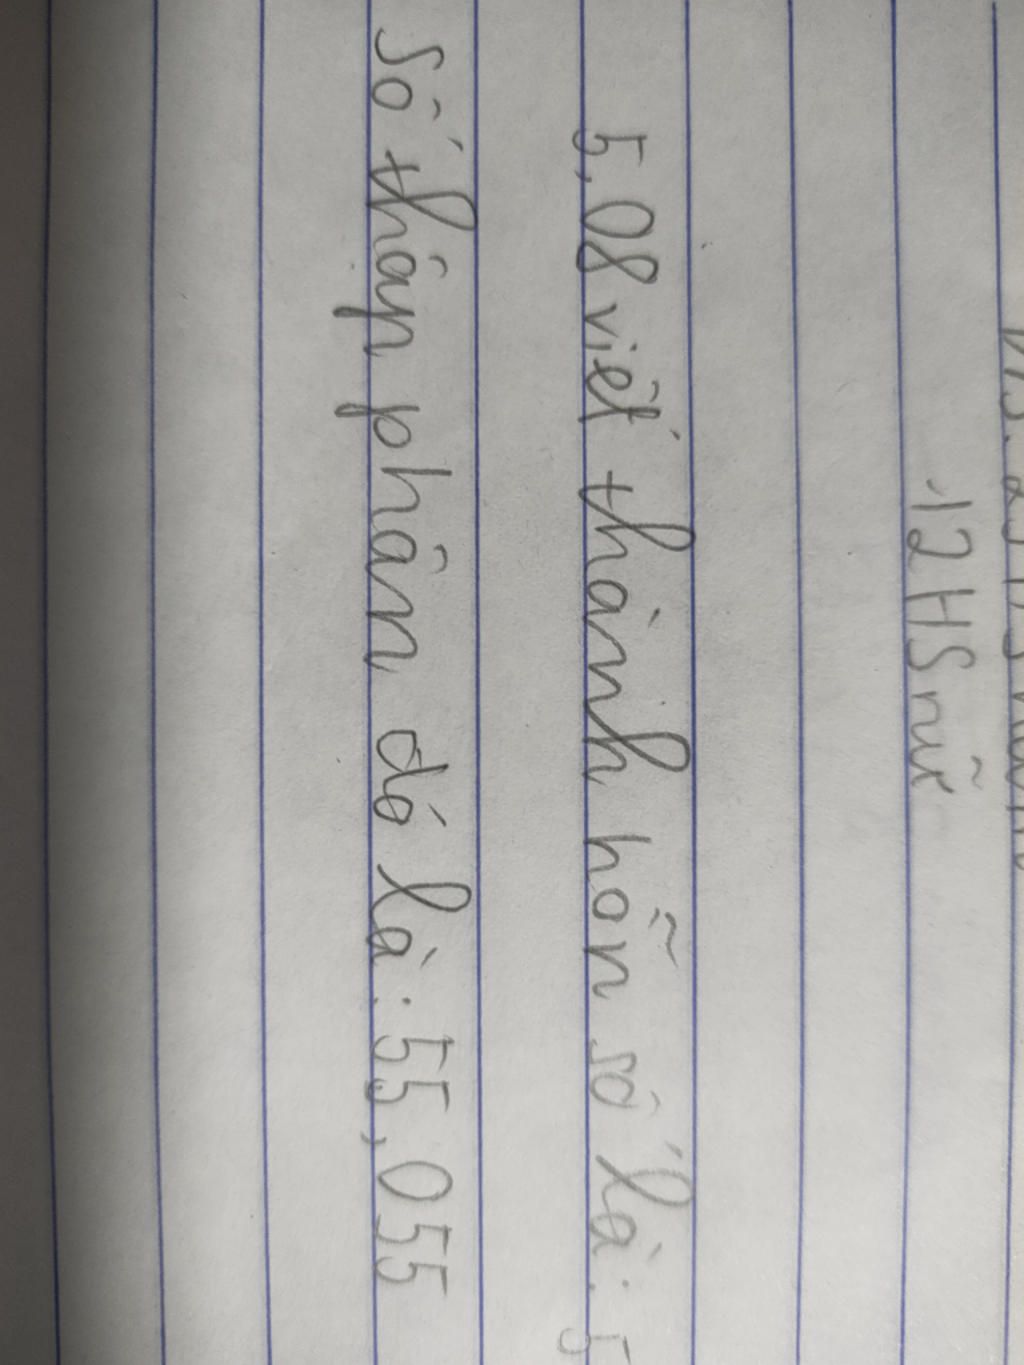 12HS nữ
5,08 viết thành hỗn số là: 5
Số thập phân đó là: 55,055